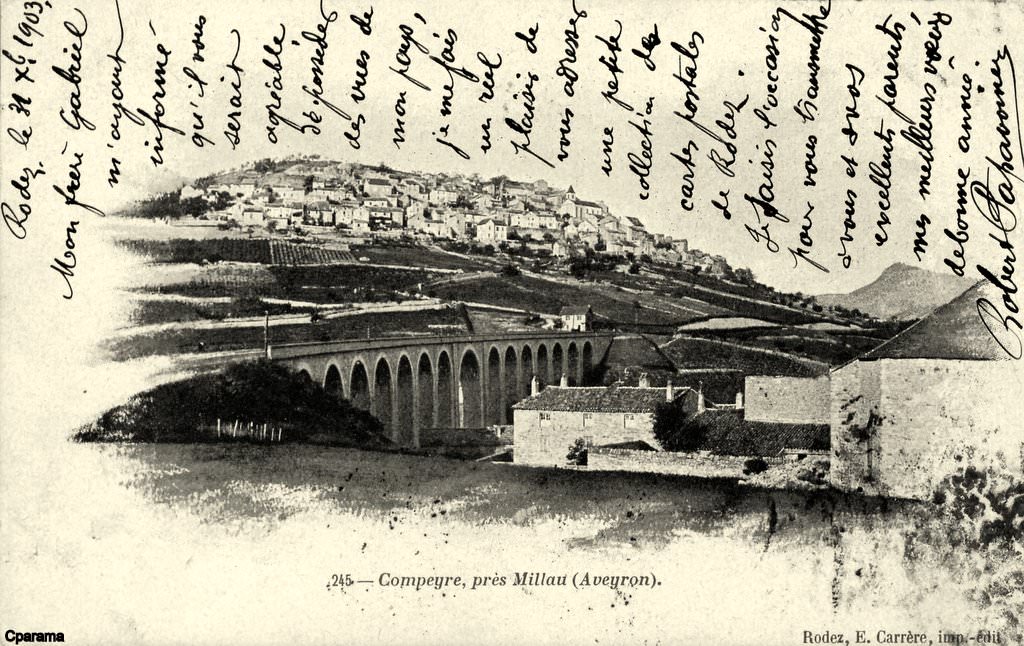 Rodez, le 31 Xe 1903,
Mon frère Gabriel
m'ayant
informé
qu'il vous
serait
agréable
de posséder
des vues de
mon pays,
je me fais
un réel
plaisir de
vous adresser
une petite
collection de
cartes postales
de Rodez.
Je saisis l'occasion
pour vous
à vous et à vos
excellents parents
mes meilleurs vœux
de bonne année.
Robert
245 — Compeyre, près Millau (Aveyron).
Rodez, E. Carrère, imp.-édit.
Cparama